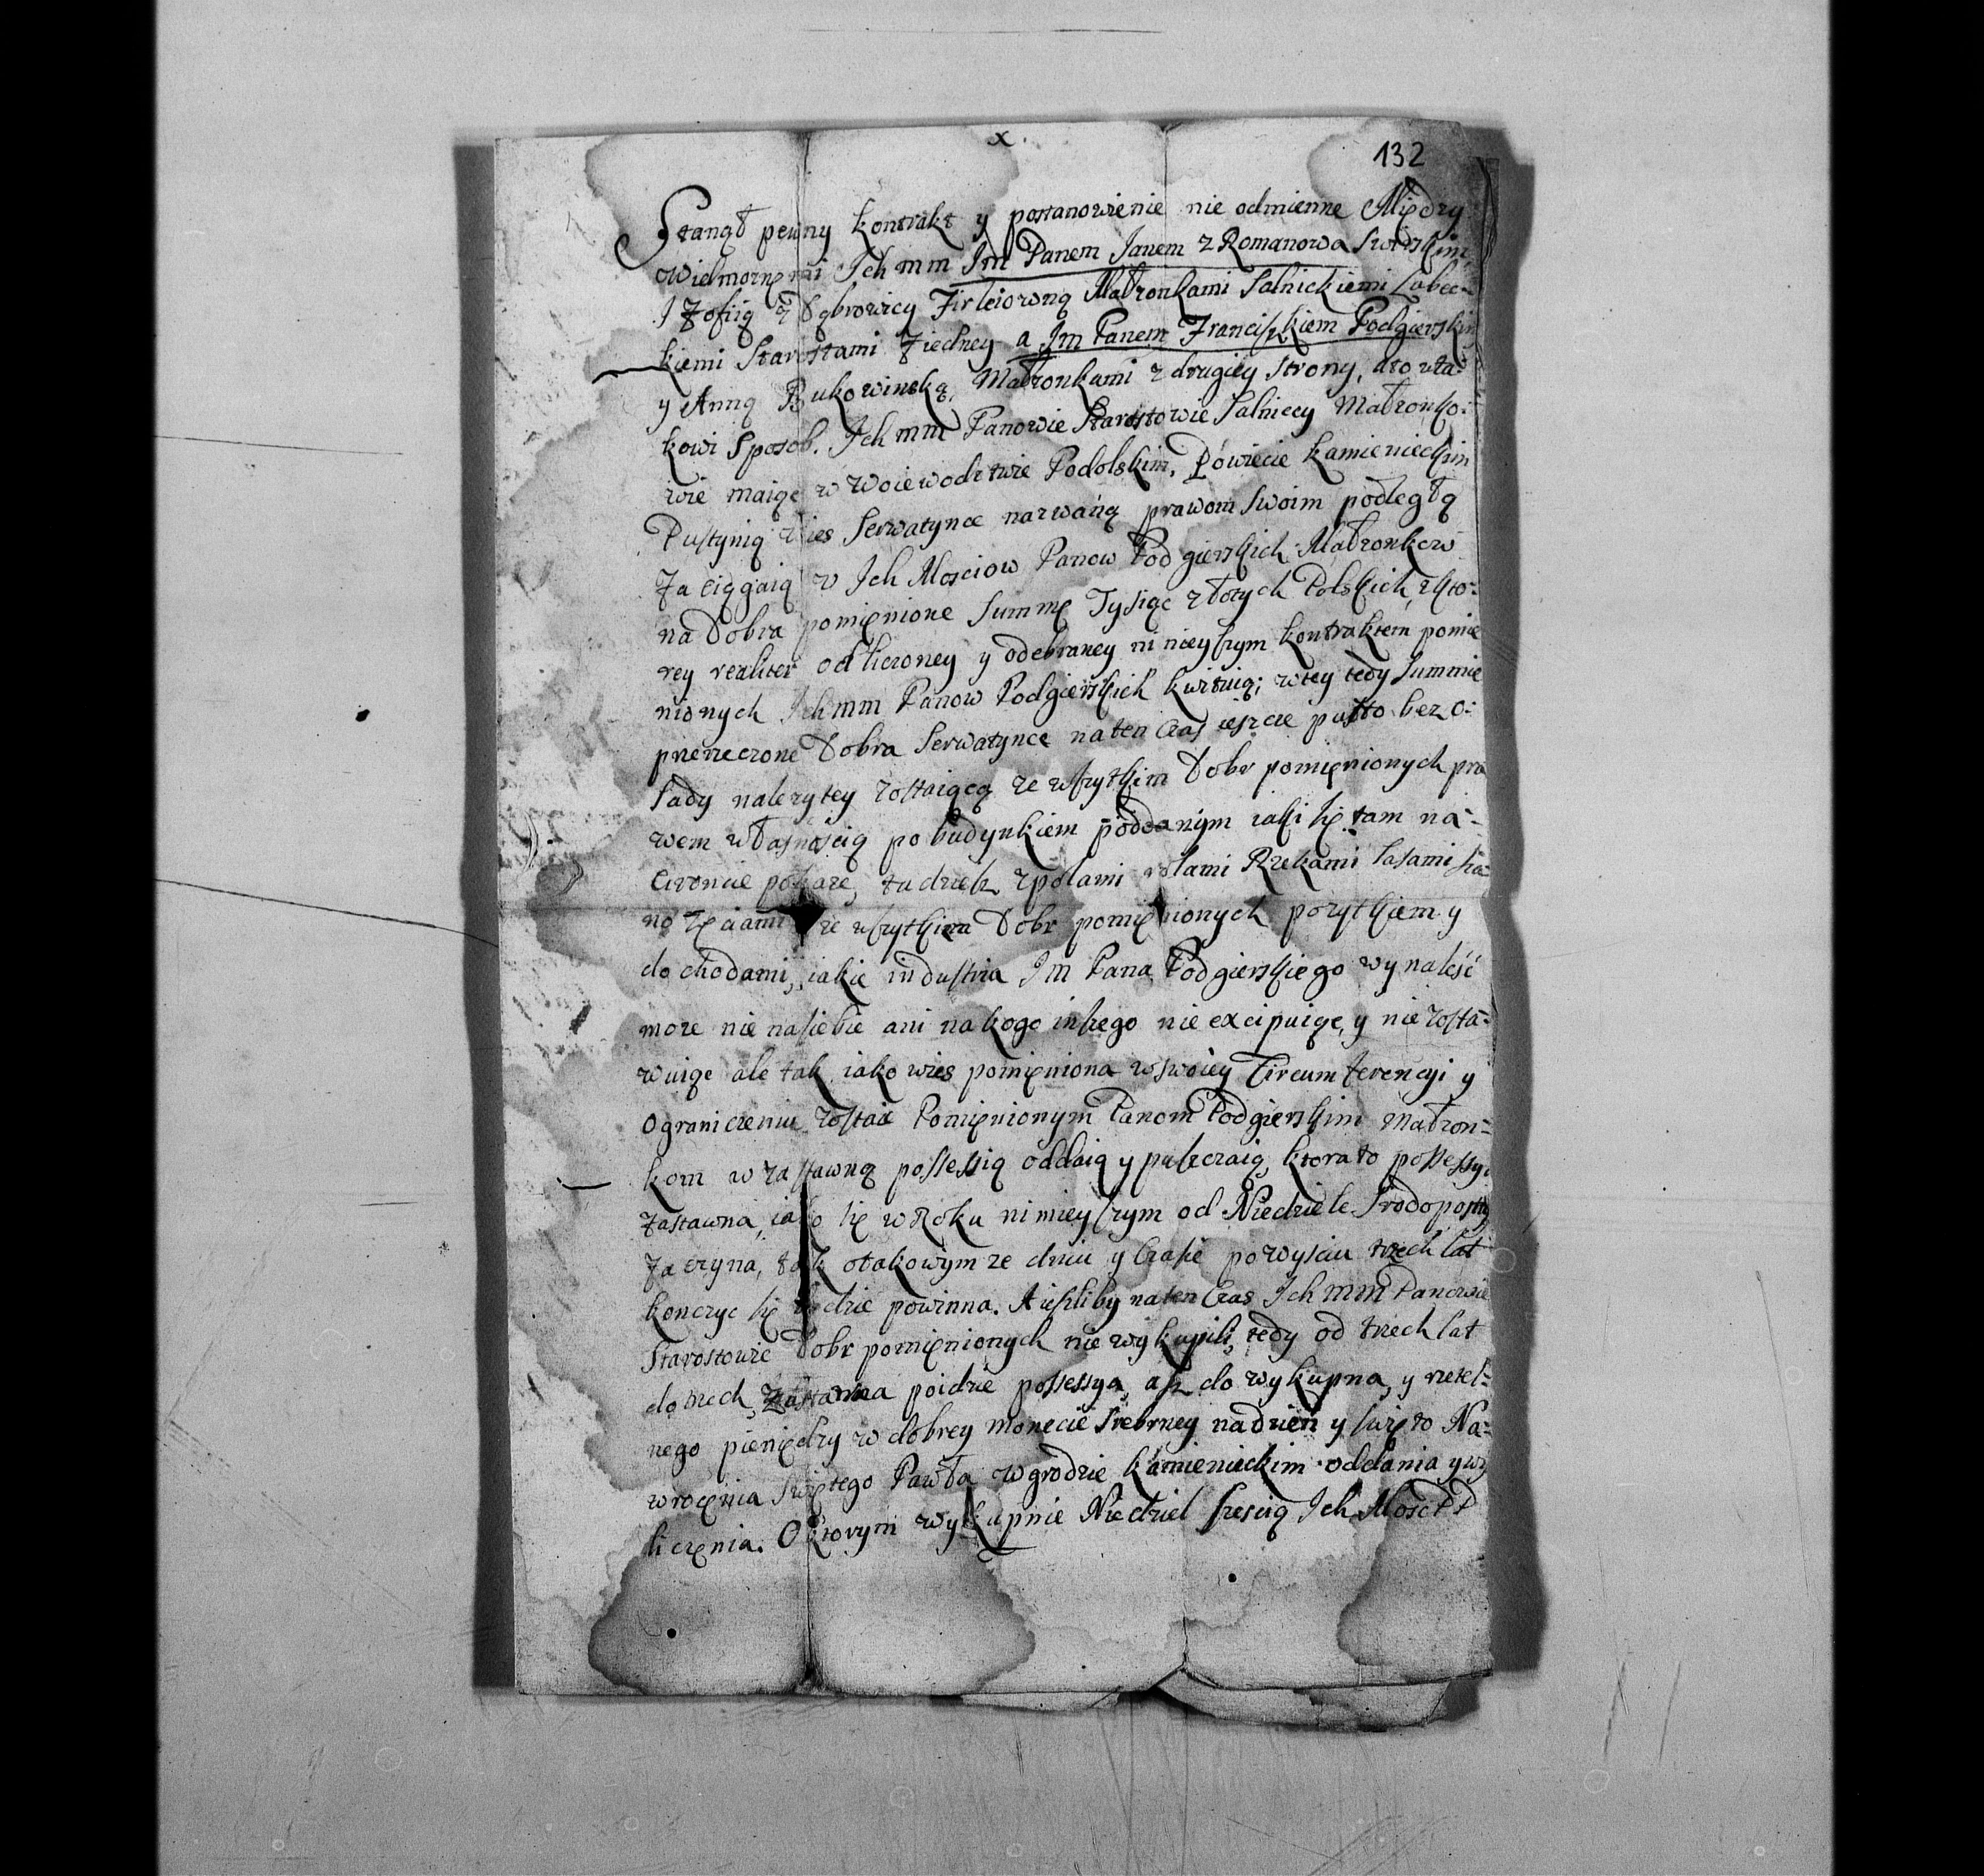 x.
132
Stanął pewny kontrakt y postanowienie nie odmienne Między
Wielmoznęmi Ich mm Im Panem Janem z Romanowa Swirskim,
I Zofiią z Dąbrowicy Firleiowną Małzonkami Salnickiemi Lubec-
kiemi Starostami z iedney a Im Panem Franciszkiem Podgierskim
y Anną Bukowinską, Małzonkami z drugiey strony, ato w ta-
kowi sposob. Ich mm Panowie Starostowie Salniccy Małzonko-
wie maiąc w Woiewodztwie Podolskim, Powiecie Kamienieckim
Pustynią wies Serwatynce nazwaną prawom swoim podległą
Zaciągaią v Ich Mosciow Panow Podgierskich Małzonkow
na Dobra pomięnione summę Tysiąc złotych Polskich, z kto-
rey realiter odliczoney y odebraney ninieyszym kontraktem pomię
nionych Ich mm Panow Podgierskich kwituią; w tey tedy summie
przerzeczone Dobra Serwatynce na ten czas ieszcze pusto bez o-
sady nalezytey zostaiącą ze wszytkim Dobr pomięnionych pra
wem własnością po budynkiem poddanym iaki się tam na-
okaze, tudziesz z polami rolami Rzekami lasami sia-
nozęciami ze wszytkim Dobr pomięnionych pozytkiem y
dochodami, iakie industria Im Pana Podgierskiego wynaleść
moze nie nasiebie ani nakogo inszego nie excipuiąc, y nie zosta-
wuiąc ale tak iako wies pomięniona w swoiey Circumferencyi y
Ograniczeniu zostaie Pomięnionym Panom Podgierskim Małzon-
kom w zastawną possessią oddaią y puszczaią, ktora to possessya
zastawna, iako się w Roku ninieyszym od Niedziele Srodoposty
Zaczyna, tak otakowym ze dniu y Czasie powysciu trzech lat
konczyc się będzie powinna. A iesliby na ten Czas Ich mm Panowie
Starostowie Dobr pomięnionych nie wykupili, tedy od trzech lat
do trzech, Zastawna poidzie possessya, asz do wykupna, y rzetel-
nego pieniędzy w dobrey monecie srebrney na dzien y swięto Na-
wrocęnia Swiętego Pawła w grodzie Kamienieckim oddania y wy
liczęnia. O ktorym wykupnie Niedziel szescią Ich Mosc PP